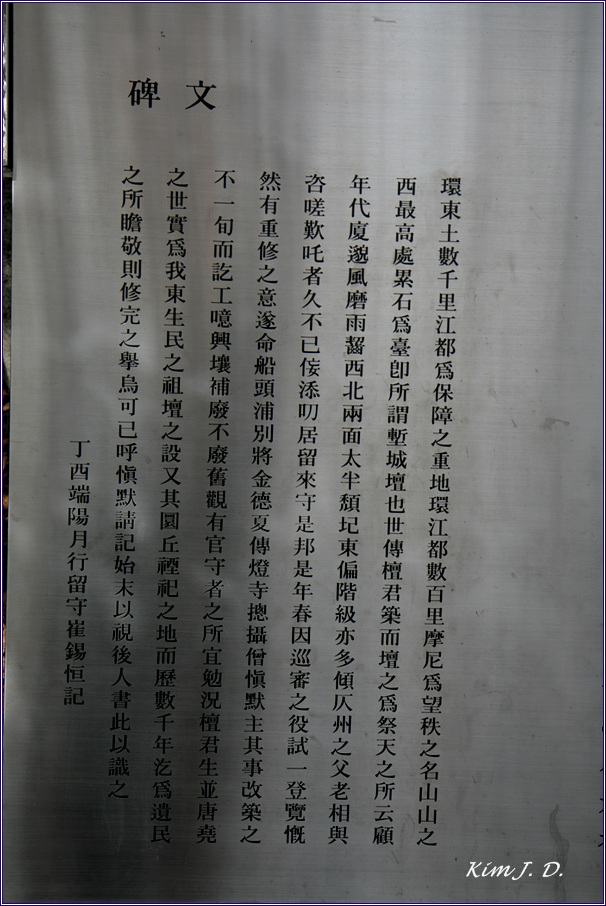 碑文
環東土數千里江都爲保障之重地環江都數百里摩尼爲望秩之名山山之
西最高處累石爲臺卽所謂塹城壇也世傳檀君築而壇之爲祭天之所云顧
年代廈邈風磨雨齧西北兩面太半頹圮東偏階級亦多傾仄州之父老相與
咨嗟歎吒者久不已侫添叨居留來守是邦是年春因巡審之役試一登覽慨
然有重修之意遂命船頭浦別將金德夏傳燈寺摠攝僧愼默主其事改築之
不一旬而訖工噫興壞補廢不廢舊觀有官守者之所宜勉況檀君生並唐堯
之世實爲我東生民之祖壇之設又其圜丘禋祀之地而歷數千年汔爲遺民
之所瞻敬則修完之擧烏可已呼愼默請記始末以視後人書此以識之
丁酉端陽月行留守崔錫恒記
Kim J. D.